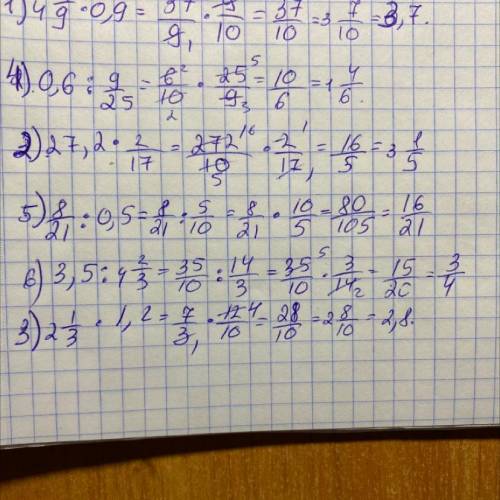 1) 4 1/9 · 0,9 = 37/9 · 9/10 = 37/10 = 3 7/10 = 3,7.
4) 0,6 : 9/25 = 6/10 · 25/9 = 10/6 = 1 4/6.
2) 27,2 · 2/17 = 272/10 · 2/17 = 16/5 = 3 1/5
5) 8/21 : 0,5 = 8/21 : 5/10 = 8/21 · 10/5 = 80/105 = 16/21
6) 3,5 : 4 2/3 = 35/10 : 14/3 = 35/10 · 3/14 = 15/20 = 3/4
3) 2 1/3 · 1,2 = 7/3 · 12/10 = 28/10 = 2 8/10 = 2,8.